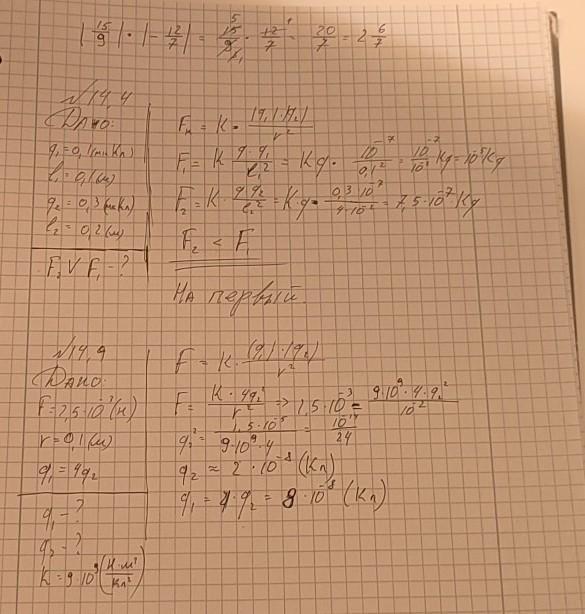 |15/9| · |-12/7| = 15/9 · 12/7 = 20/7 = 2 6/7
№14,4
Дано:
q₁=0,1(мкКл)
l₁=0,1(м)
q₂=0,3(мкКл)
l₂=0,2(м)
F₂ V F₁ - ?
Fк = K · |q₁|·|q₂|/r²
F₁ = K q·q₁/l₁² = Kq · 10⁻⁷/0,1² = 10⁻⁷/10⁻² Kq = 10⁻⁵Kq
F₂ = K · q q₂/l₂² = K·q · 0,3·10⁻⁷/4·10⁻² = 7,5·10⁻⁷·Kq
F₂ < F₁
На первый.
№14,9
Дано:
r=0,1(м)
q₁=4q₂
q₁ - ?
q₂ - ?
K=9·10⁹(Н·м²/Кл²)
F = K · |q₁|·|q₂|/r²
F = K·4q₂²/r² => 1,5·10⁻³ = 9·10⁹·4·q₂²/10⁻²
q₂² = 1,5·10⁻⁵/9·10⁹·4 = 10⁻¹⁴/24
q₂ ≈ 2·10⁻⁸ (Кл)
q₁ = 4·q₂ = 8·10⁻⁸ (Кл)